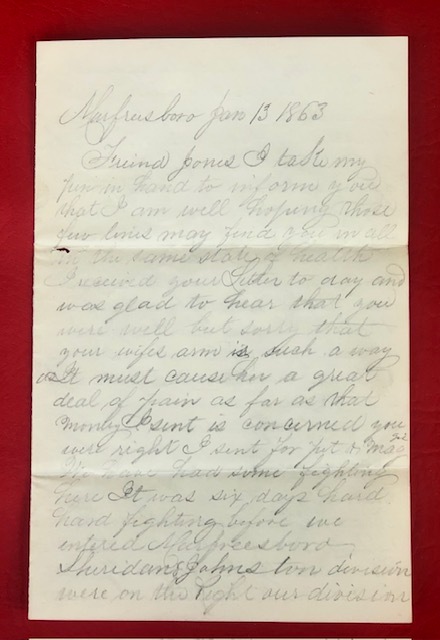 Murfreesboro Jan 13 1863
Freind Jones I take my
pen in hand to inform you
that I am well hoping those
few lines may find you in all
in the same state of health
I received your letter to day and
was glad to hear that you
were well but sorry that
your wifes arm is such a way
It must cause her a great
deal of pain as far as that
money I sent is concerned you
were right I sent for
We have had some fighting
here It was six days hard
hard fighting before we
entered Murfreesboro
Sheridan & Johns ton division
were on the right our division